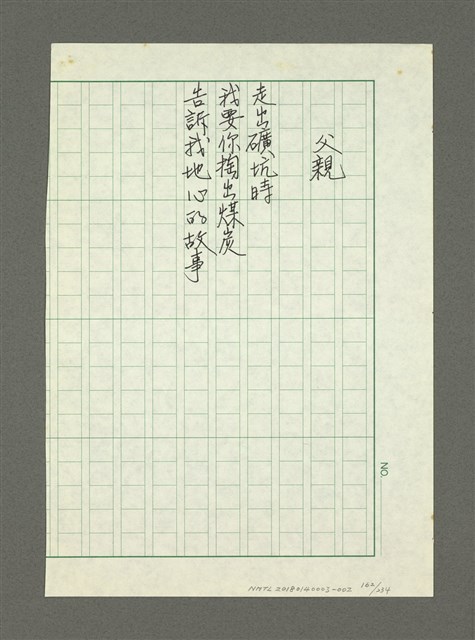 父親
走出礦坑時
我要你掏出煤炭
告訴我地心的故事
NO.
NMTL20180140003-002 162/234